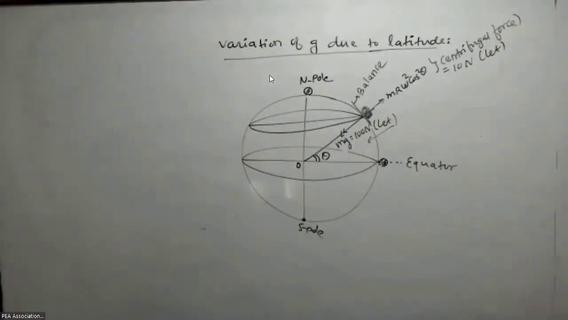 variation of g due to latitude:
N-Pole
Balance
mRω²cos²θ } (Centrifugal force)
= 10N (let)
mg=100N (let)
θ
O
Equator
S-Pole
PEA Association...